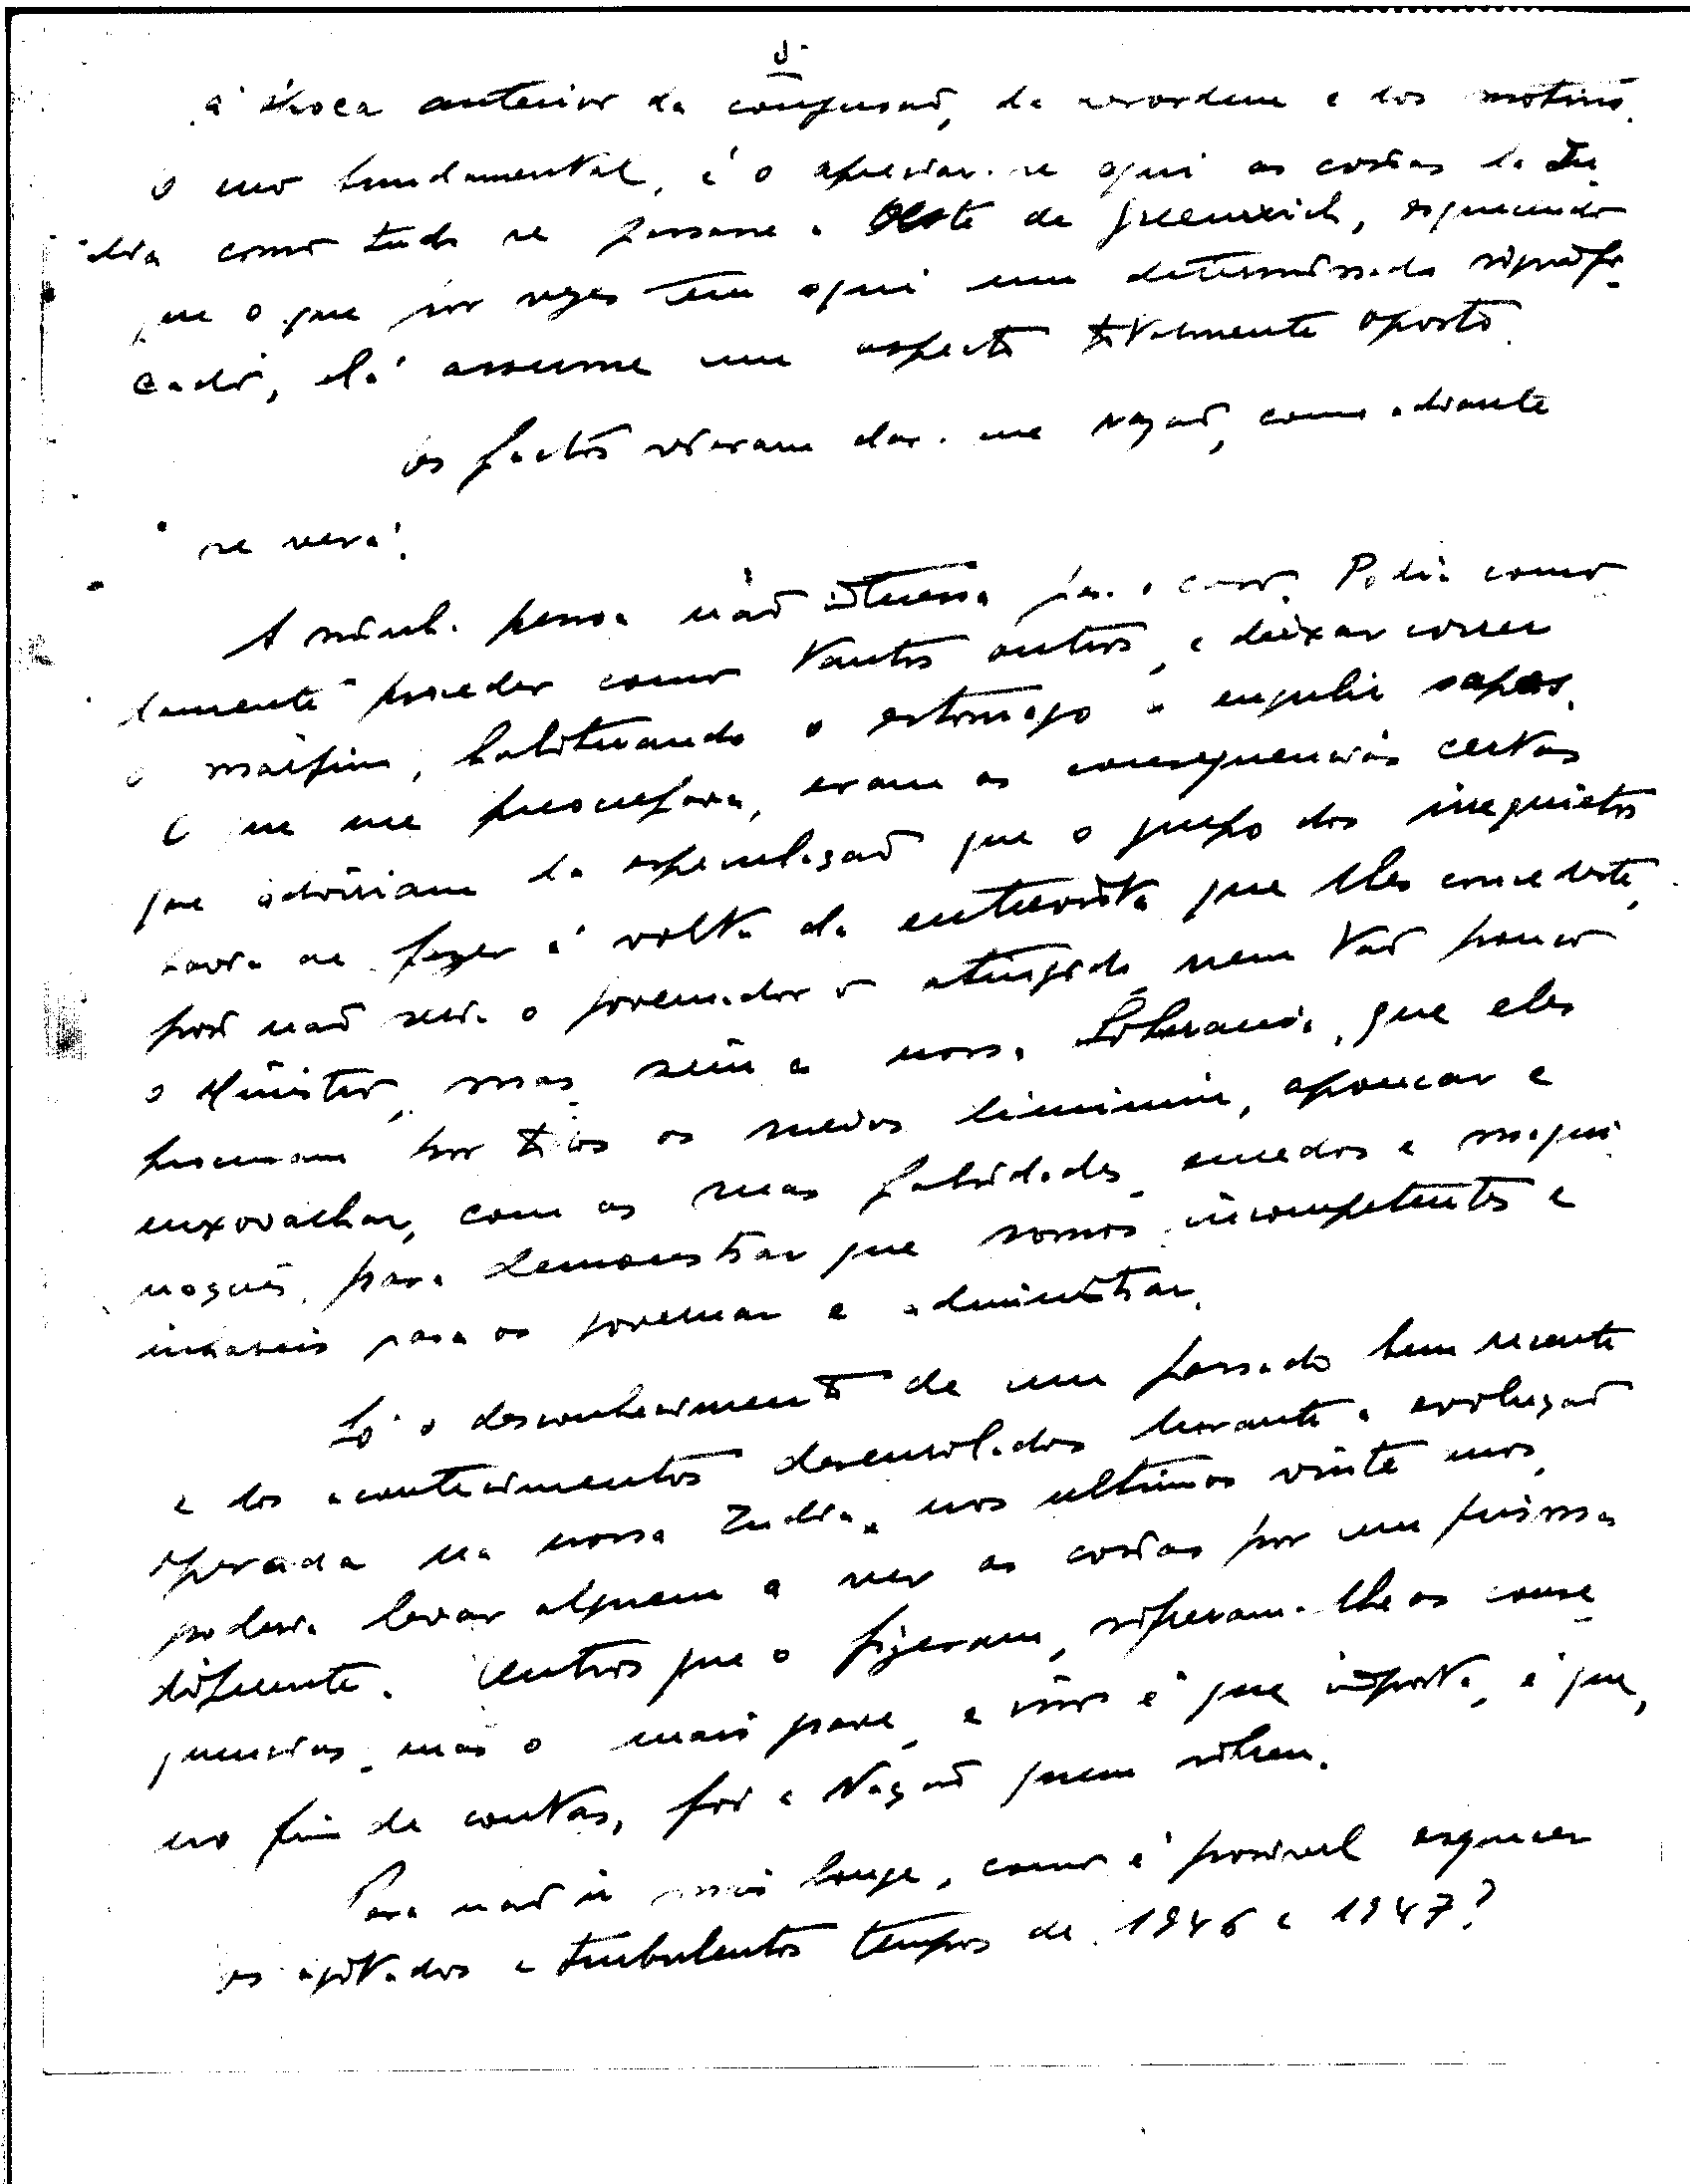 à época anterior da confusão, da desordem e dos motins.
O erro fundamental, é o apreciar-se aqui as coisas da In-
dia como tudo se passasse a Oeste de Greenwich, esquecendo
que o que por vezes tem aqui um determinado signifi-
cado, lá assume um aspecto totalmente oposto.
Os factos vieram dar-me razão, como adiante
se verá.
A minha pessoa não interessa para o caso. Podia como-
damente proceder como tantos outros, e deixar correr
o marfim, habituando o estomago a engulir sapos.
O que me preocupava, eram as consequencias certas
que adviriam da especulação que o grupo dos inquietos
havia de fazer á volta da entrevista que lhes concedeste,
pois não seria o governador o atingido nem tão pouco
o Ministro, mas sim a nossa Soberania, que eles
procuram por todos os meios diminuir, apoucar e
enxovalhar, com as suas falsidades, enredos e maqui-
nações, para demonstrar que somos incompetentes e
incapazes para os governar e administrar.
Só o desconhecimento de um passado bem recente
e dos acontecimentos desenrolados durante a evolução
operada na nossa India, nos ultimos vinte anos,
poderia levar alguem a ver as coisas por um prisma
diferente. Outros que o fizeram, sofreram-lhe as conse-
quencias, mas o mais grave, e isso é que importa, é que,
no fim de contas, foi a Nação quem sofreu.
Para não ir mais longe, como é possivel esquecer
os agitados e turbulentos tempos de 1946 e 1947?